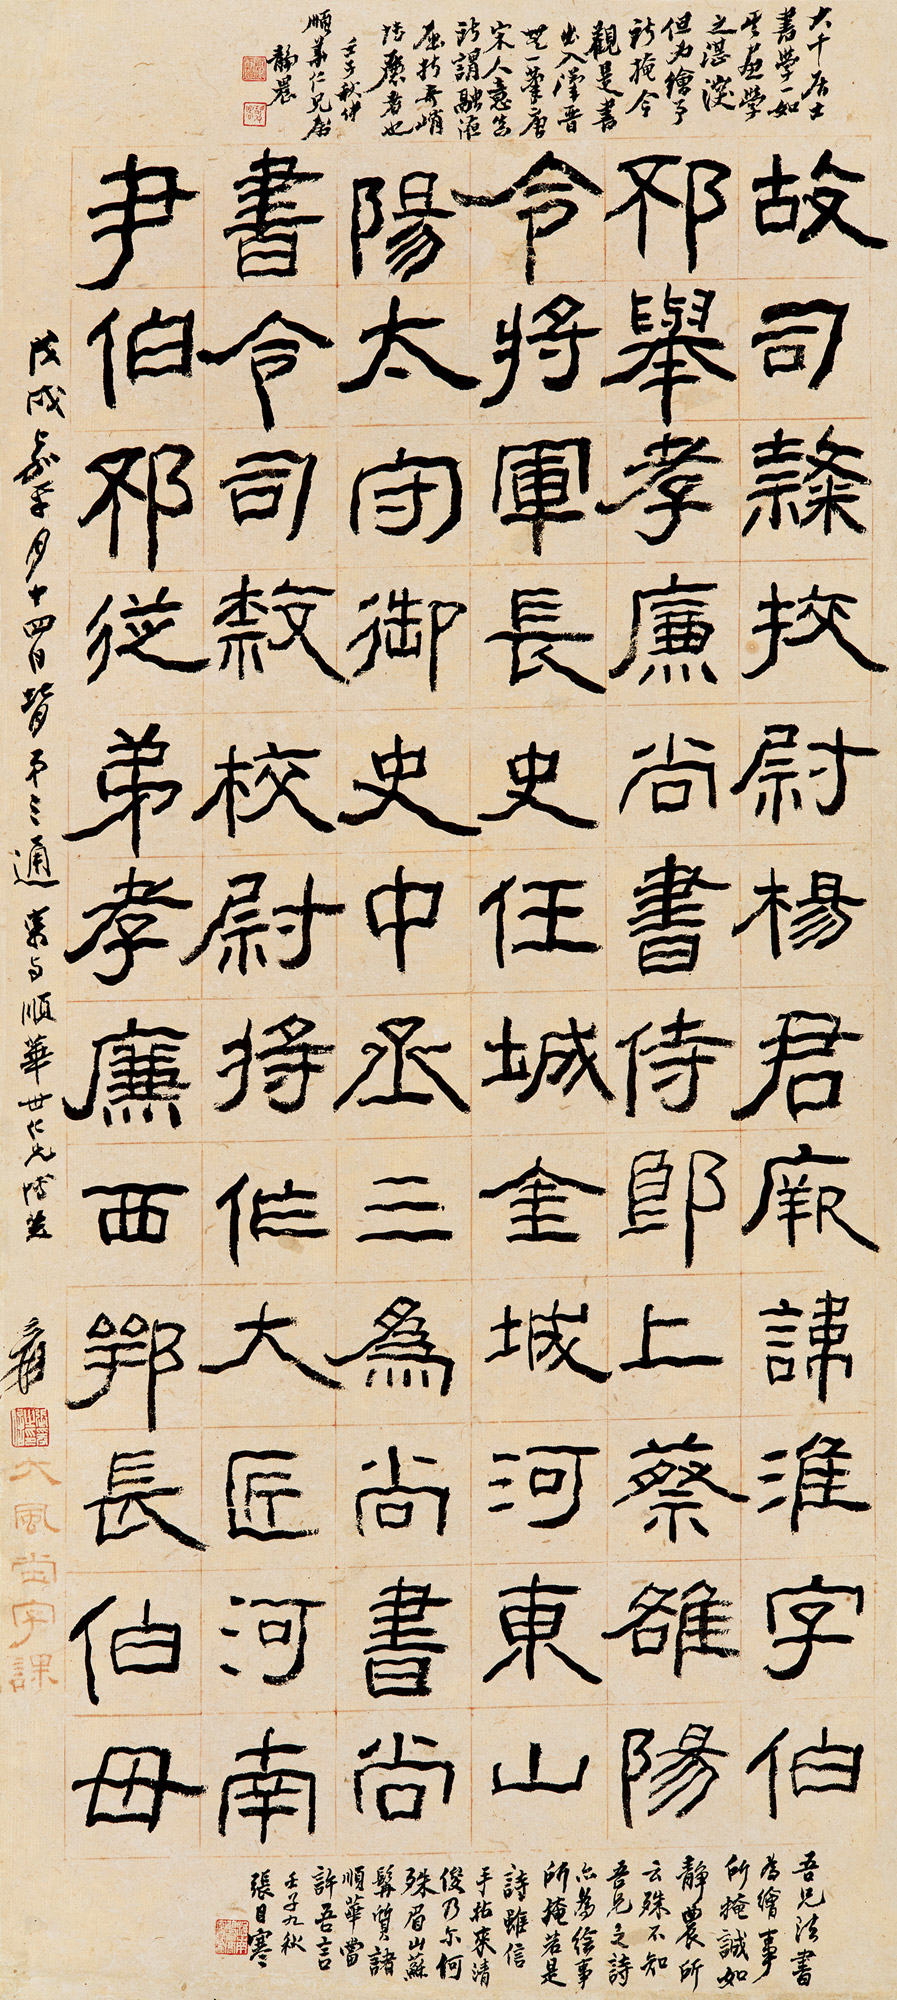 大千居士
書學一如
其画學
之湛深
但为繪事
所掩今
觀是書
出入漢晉
無一筆唐
宋人意當
所謂融液
屈折奇峭
者也
壬子秋仲
順華仁兄属
靜農
故司隸校尉楊君厥諱淮字伯
邳舉孝廉尚書侍郎上蔡雒陽
令將軍長史任城金城河東山
陽太守御史中丞三為尚書尚
書令司隸校尉將作大匠河南
尹伯邳從弟孝廉西鄂長伯母
戊戌嘉平月十四日背第三通 寫与順華世仁兄博笑 爰
大風堂字課
吾兄法書
為繪事
所掩誠如
靜農所
云殊不知
吾兄之詩
亦為绘事
所掩若是
詩雖信
手拈來清
俊乃尔何
殊眉山蘇
髯質諸
順華當
許吾言
壬子九秋
張目寒